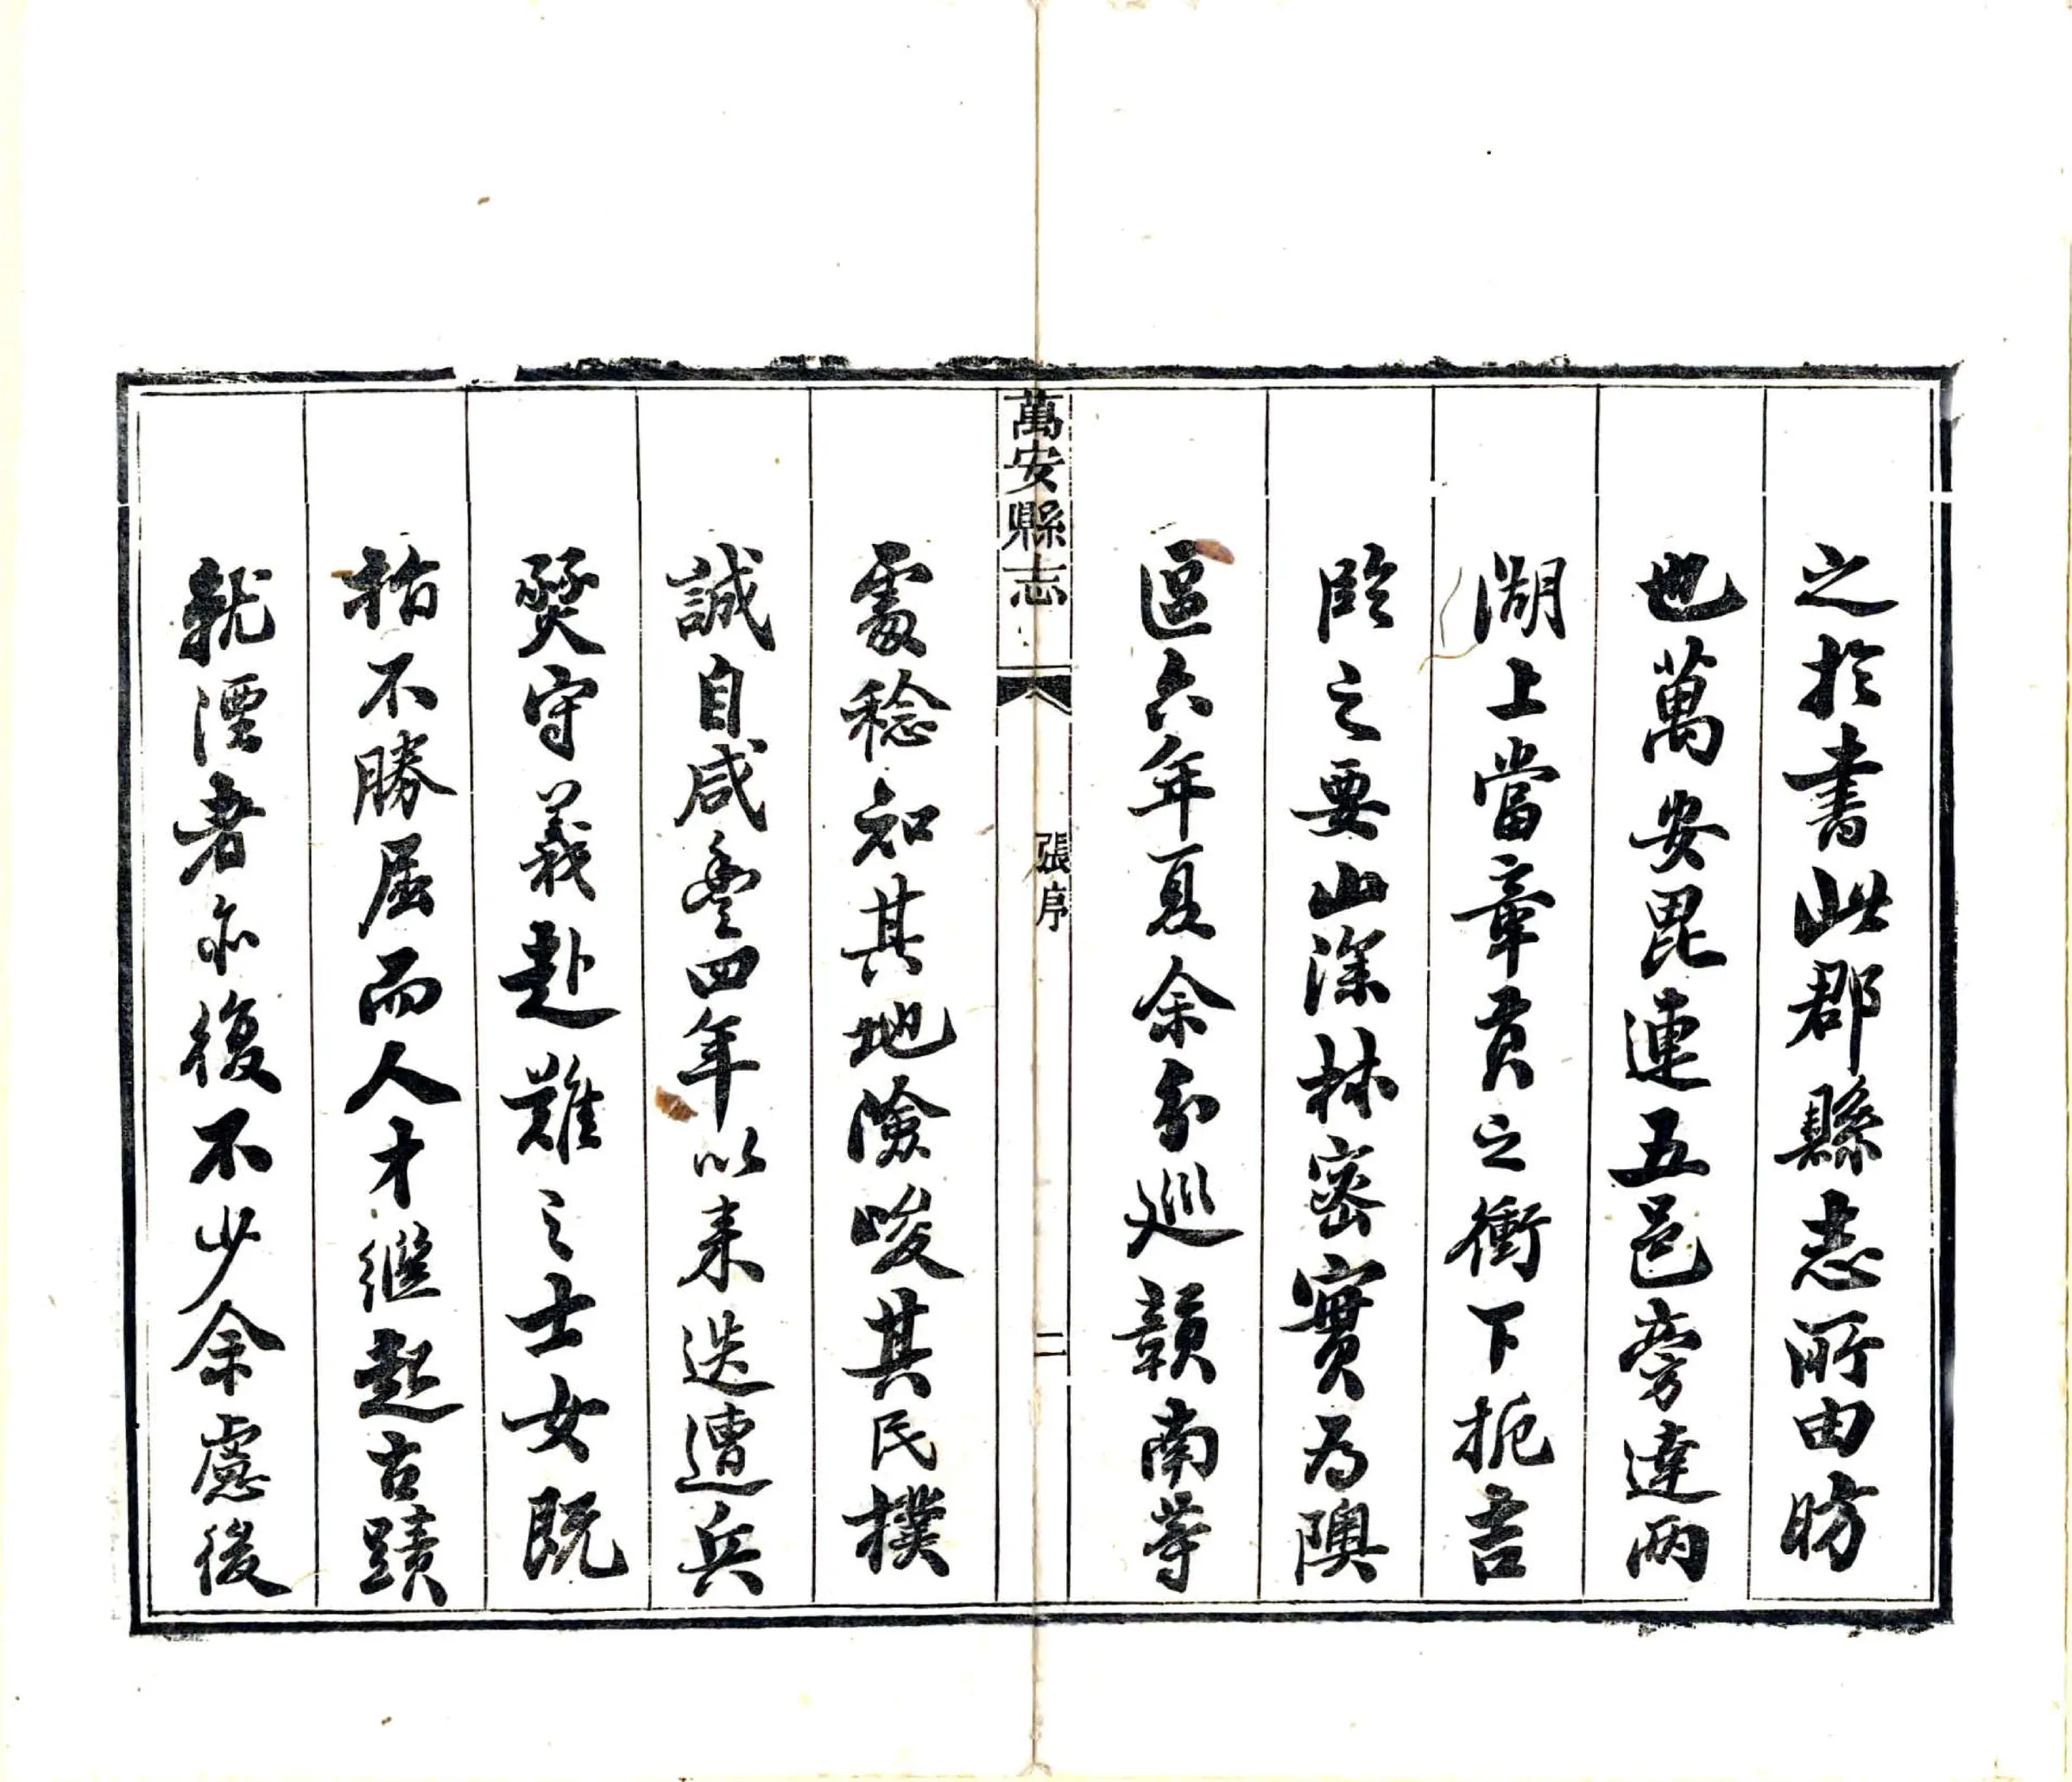 之於書此郡縣志所由昉
也萬安毘連五邑旁達兩
湖上當章貢之衝下扼吉
臨之要山深林密實為隩
區六年夏余分巡贛南等
萬安縣志
張序
二
處稔知其地險峻其民樸
誠自咸豐四年以来迭遭兵
燹守義赴難之士女既
指不勝屈而人才繼起古蹟
就湮者亦復不少余慮後